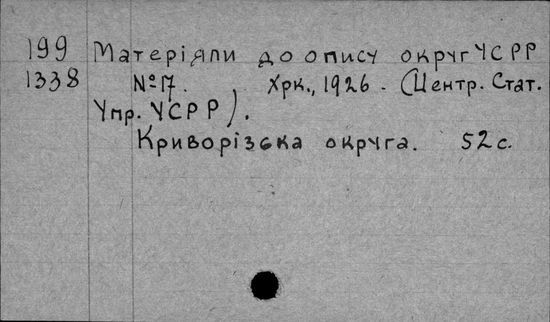 199 Матеріяли до опису округ УСРР
1338 №17. Хрк., 1926 - (Центр. Стат.
Упр. УСРР).
Криворізька округа. 52 с.